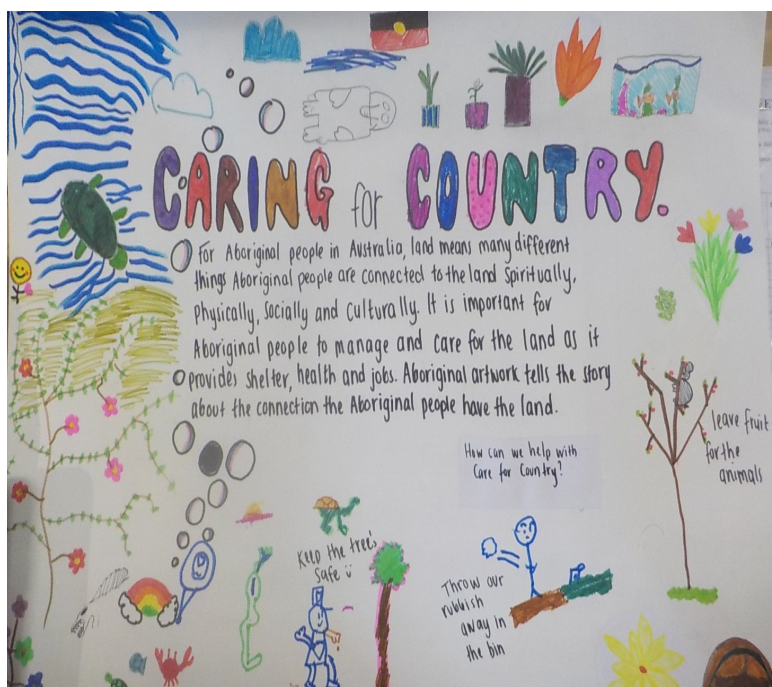 CARING for COUNTRY.
For Aboriginal people in Australia, land means many different
things Aboriginal people are connected to the land Spiritually,
Physically, Socially and Culturally. It is important for
Aboriginal people to manage and care for the land as it
provides shelter, health and jobs. Aboriginal artwork tells the story
about the connection the Aboriginal people have the land.
How can we help with
Care for Country?
leave fruit
for the
animals
Keep the tree's
Safe
Throw our
rubbish
away in
the bin